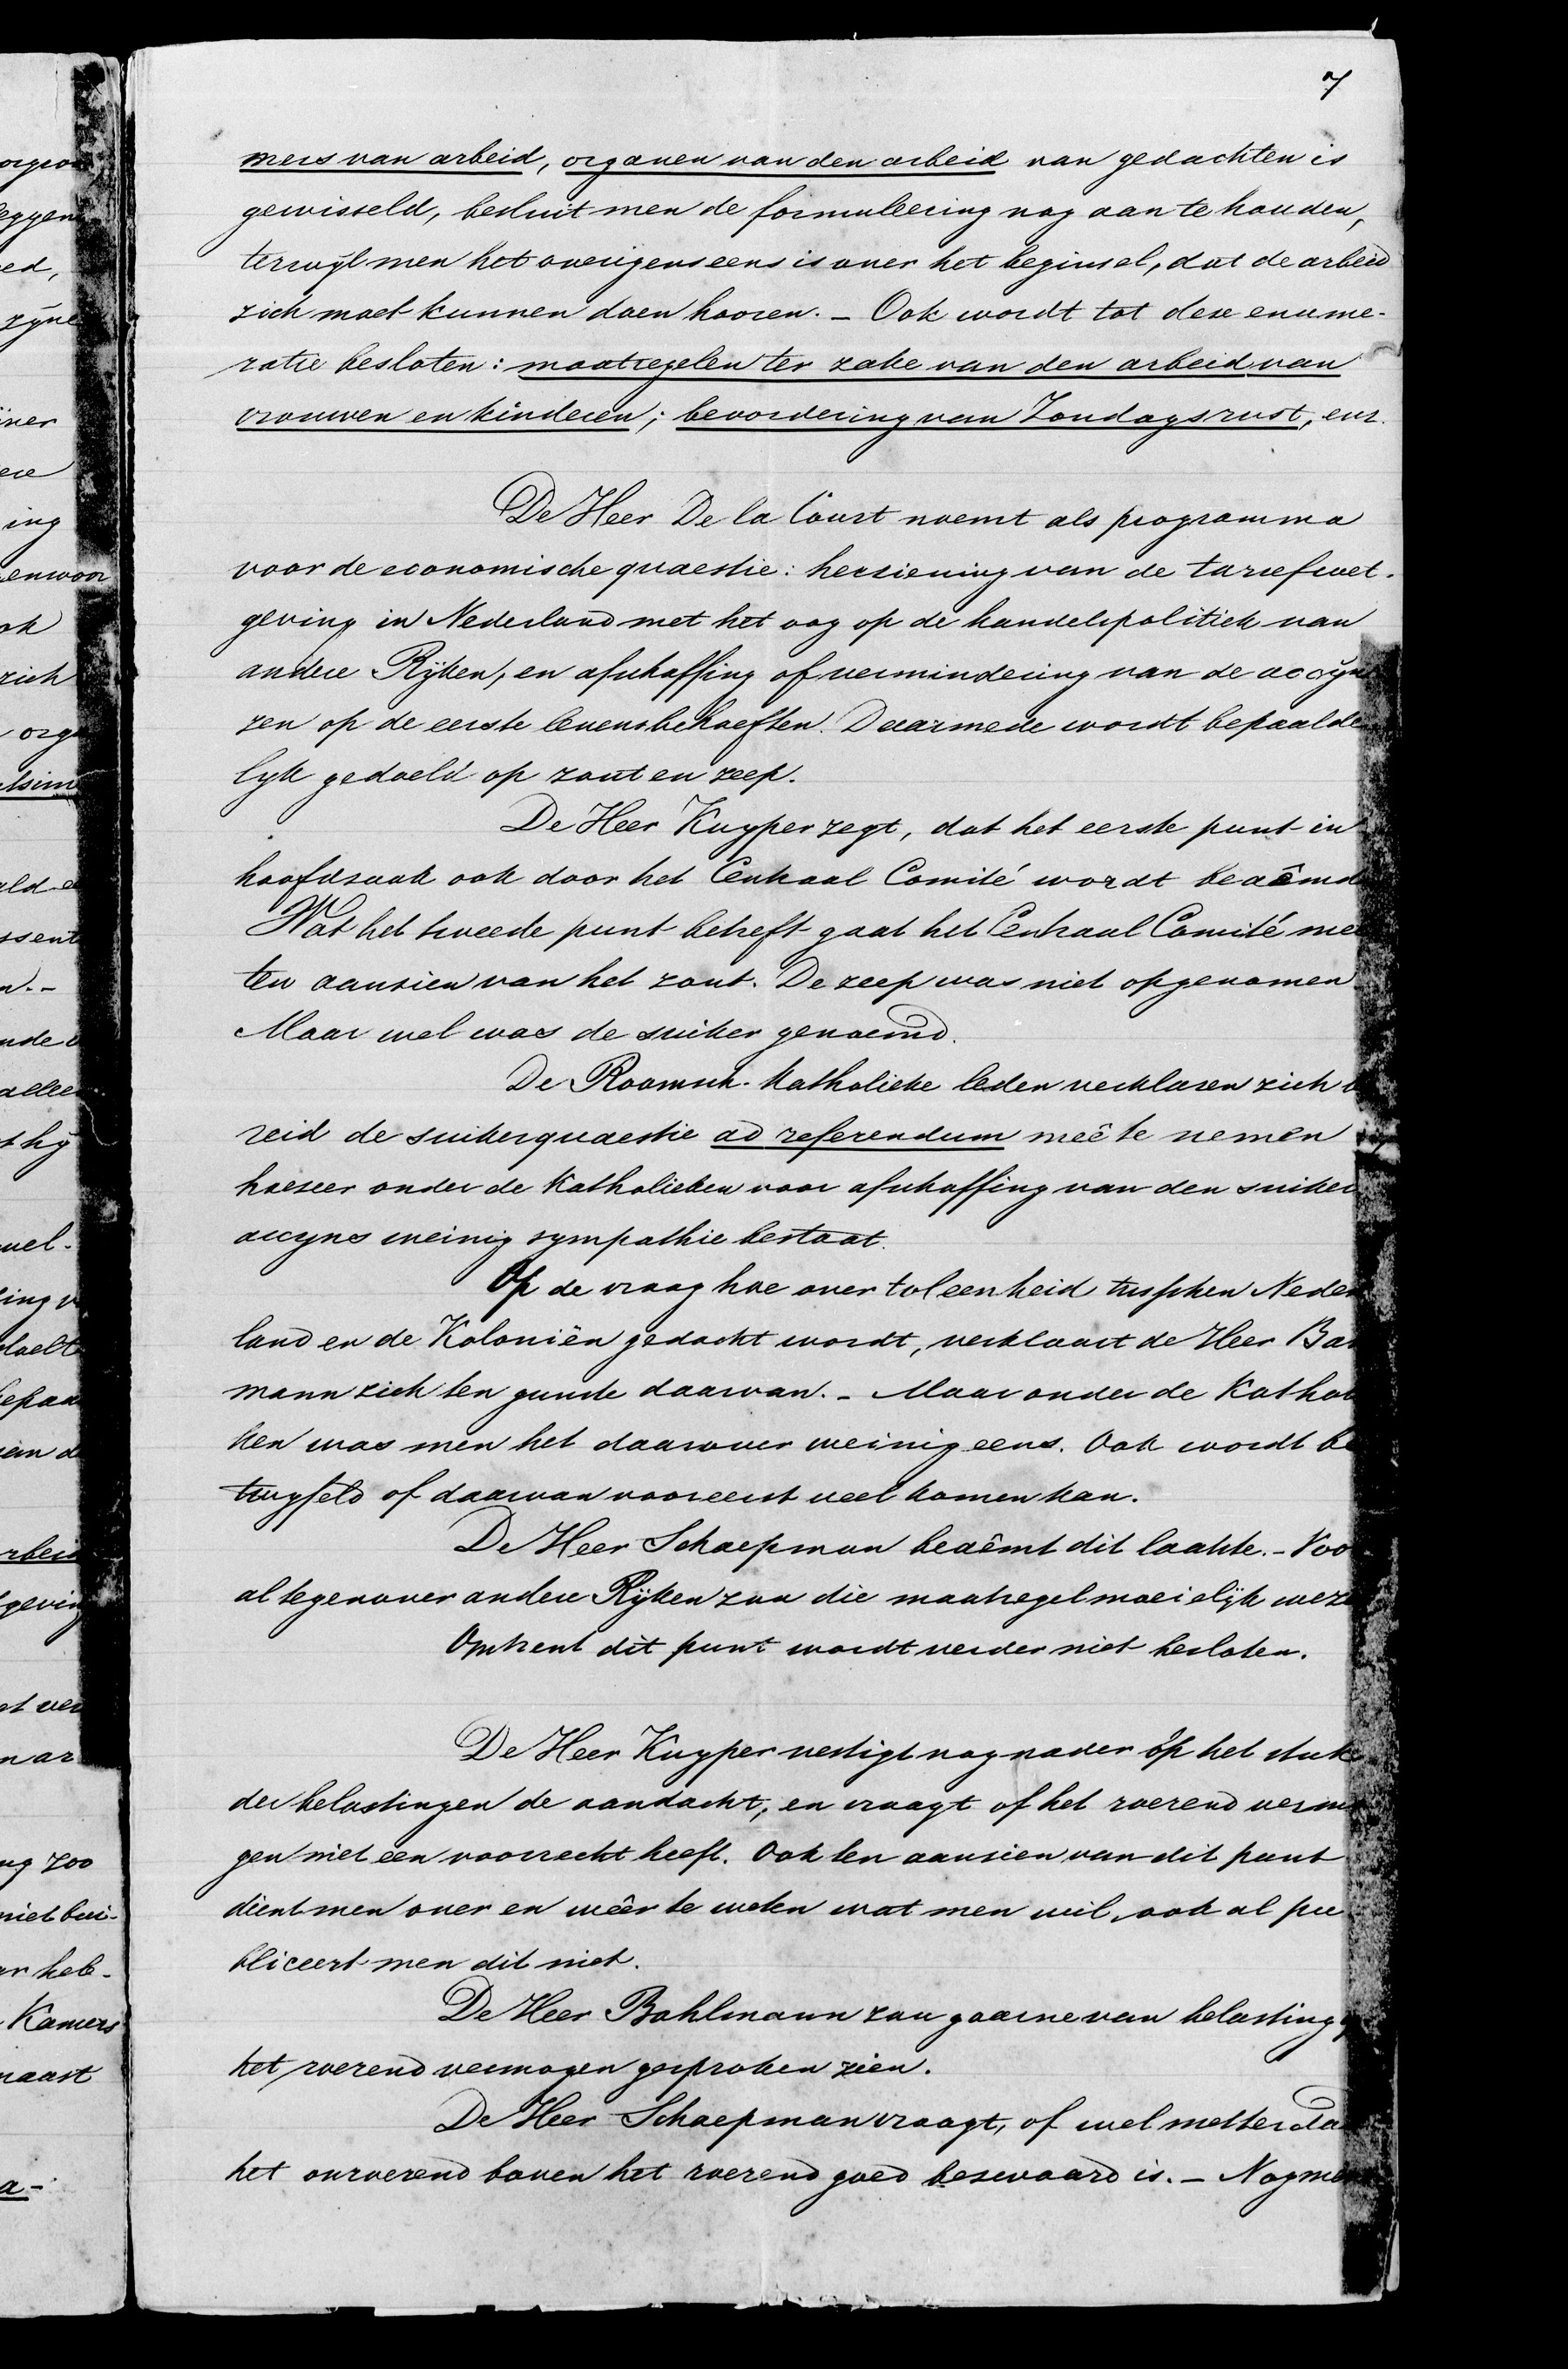 7
mers van arbeid, organen van den arbeid van gedachten is
gewisseld, besluit men de formuleering nog aan te houden,
terwijl men het overigens eens is over het beginsel, dat de arbeid
zich moet kunnen doen hooren. - Ook wordt tot deze enume-
ratie besloten: maatregelen ter zake van den arbeid van
vrouwen en kinderen; bevordering van Zondagsrust, enz.
De Heer De la Court noemt als programma
voor de economische quaestie: herziening van de tariefwet-
geving in Nederland met het oog op de handelspolitiek van
andere Rijken, en afschaffing of vermindering van de accijn
zen op de eerste levensbehoeften. Daarmede wordt bepaalde
lyk gedoeld op zout en zeep.
De Heer Kuyper zegt, dat het eerste punt in
hoofdzaak ook door het Centraal Comité wordt beaêmd
Wat het tweede punt betreft gaat het Centraal Comité mee
ten aanzien van het zout. De zeep was niet opgenomen.
Maar wel was de suiker genoemd.
De Roomsch-Katholieke leden verklaren zich b
reid de suikerquaestie ad referendum meê te nemen
hoezeer onder de Katholieken voor afschaffing van den suiker
accyns weinig sympathie bestaat.
Op de vraag hoe over toleenheid tusschen Neder
land en de Koloniën gedacht wordt, verklaart de Heer Ba
mann zich ten gunste daarvan. - Maar onder de Katho
ken was men het daarover weinig eens. Ook wordt be
twyfeld of daarvan vooreerst veel komen kan.
De Heer Schaepman beaêmt dit laatste. - Voo
al tegenover andere Rijken zou die maatregel moeielijk weze
Omtrent dit punt wordt verder niet besloten.
De Heer Kuyper vestigt nog nader op het stuk
der belastingen de aandacht, en vraagt of het roerend vermo
gen niet een voorrecht heeft. Ook ten aanzien van dit punt
dient men over en wêer te weten wat men wil, ook al pu
bliceert men dit niet.
De Heer Bahlmann zou gaarne van belasting
het roerend vermogen gesproken zien.
De Heer Schaepman vraagt, of wel metterda
het onroerend boven het roerend goed bezwaard is. - Nogme